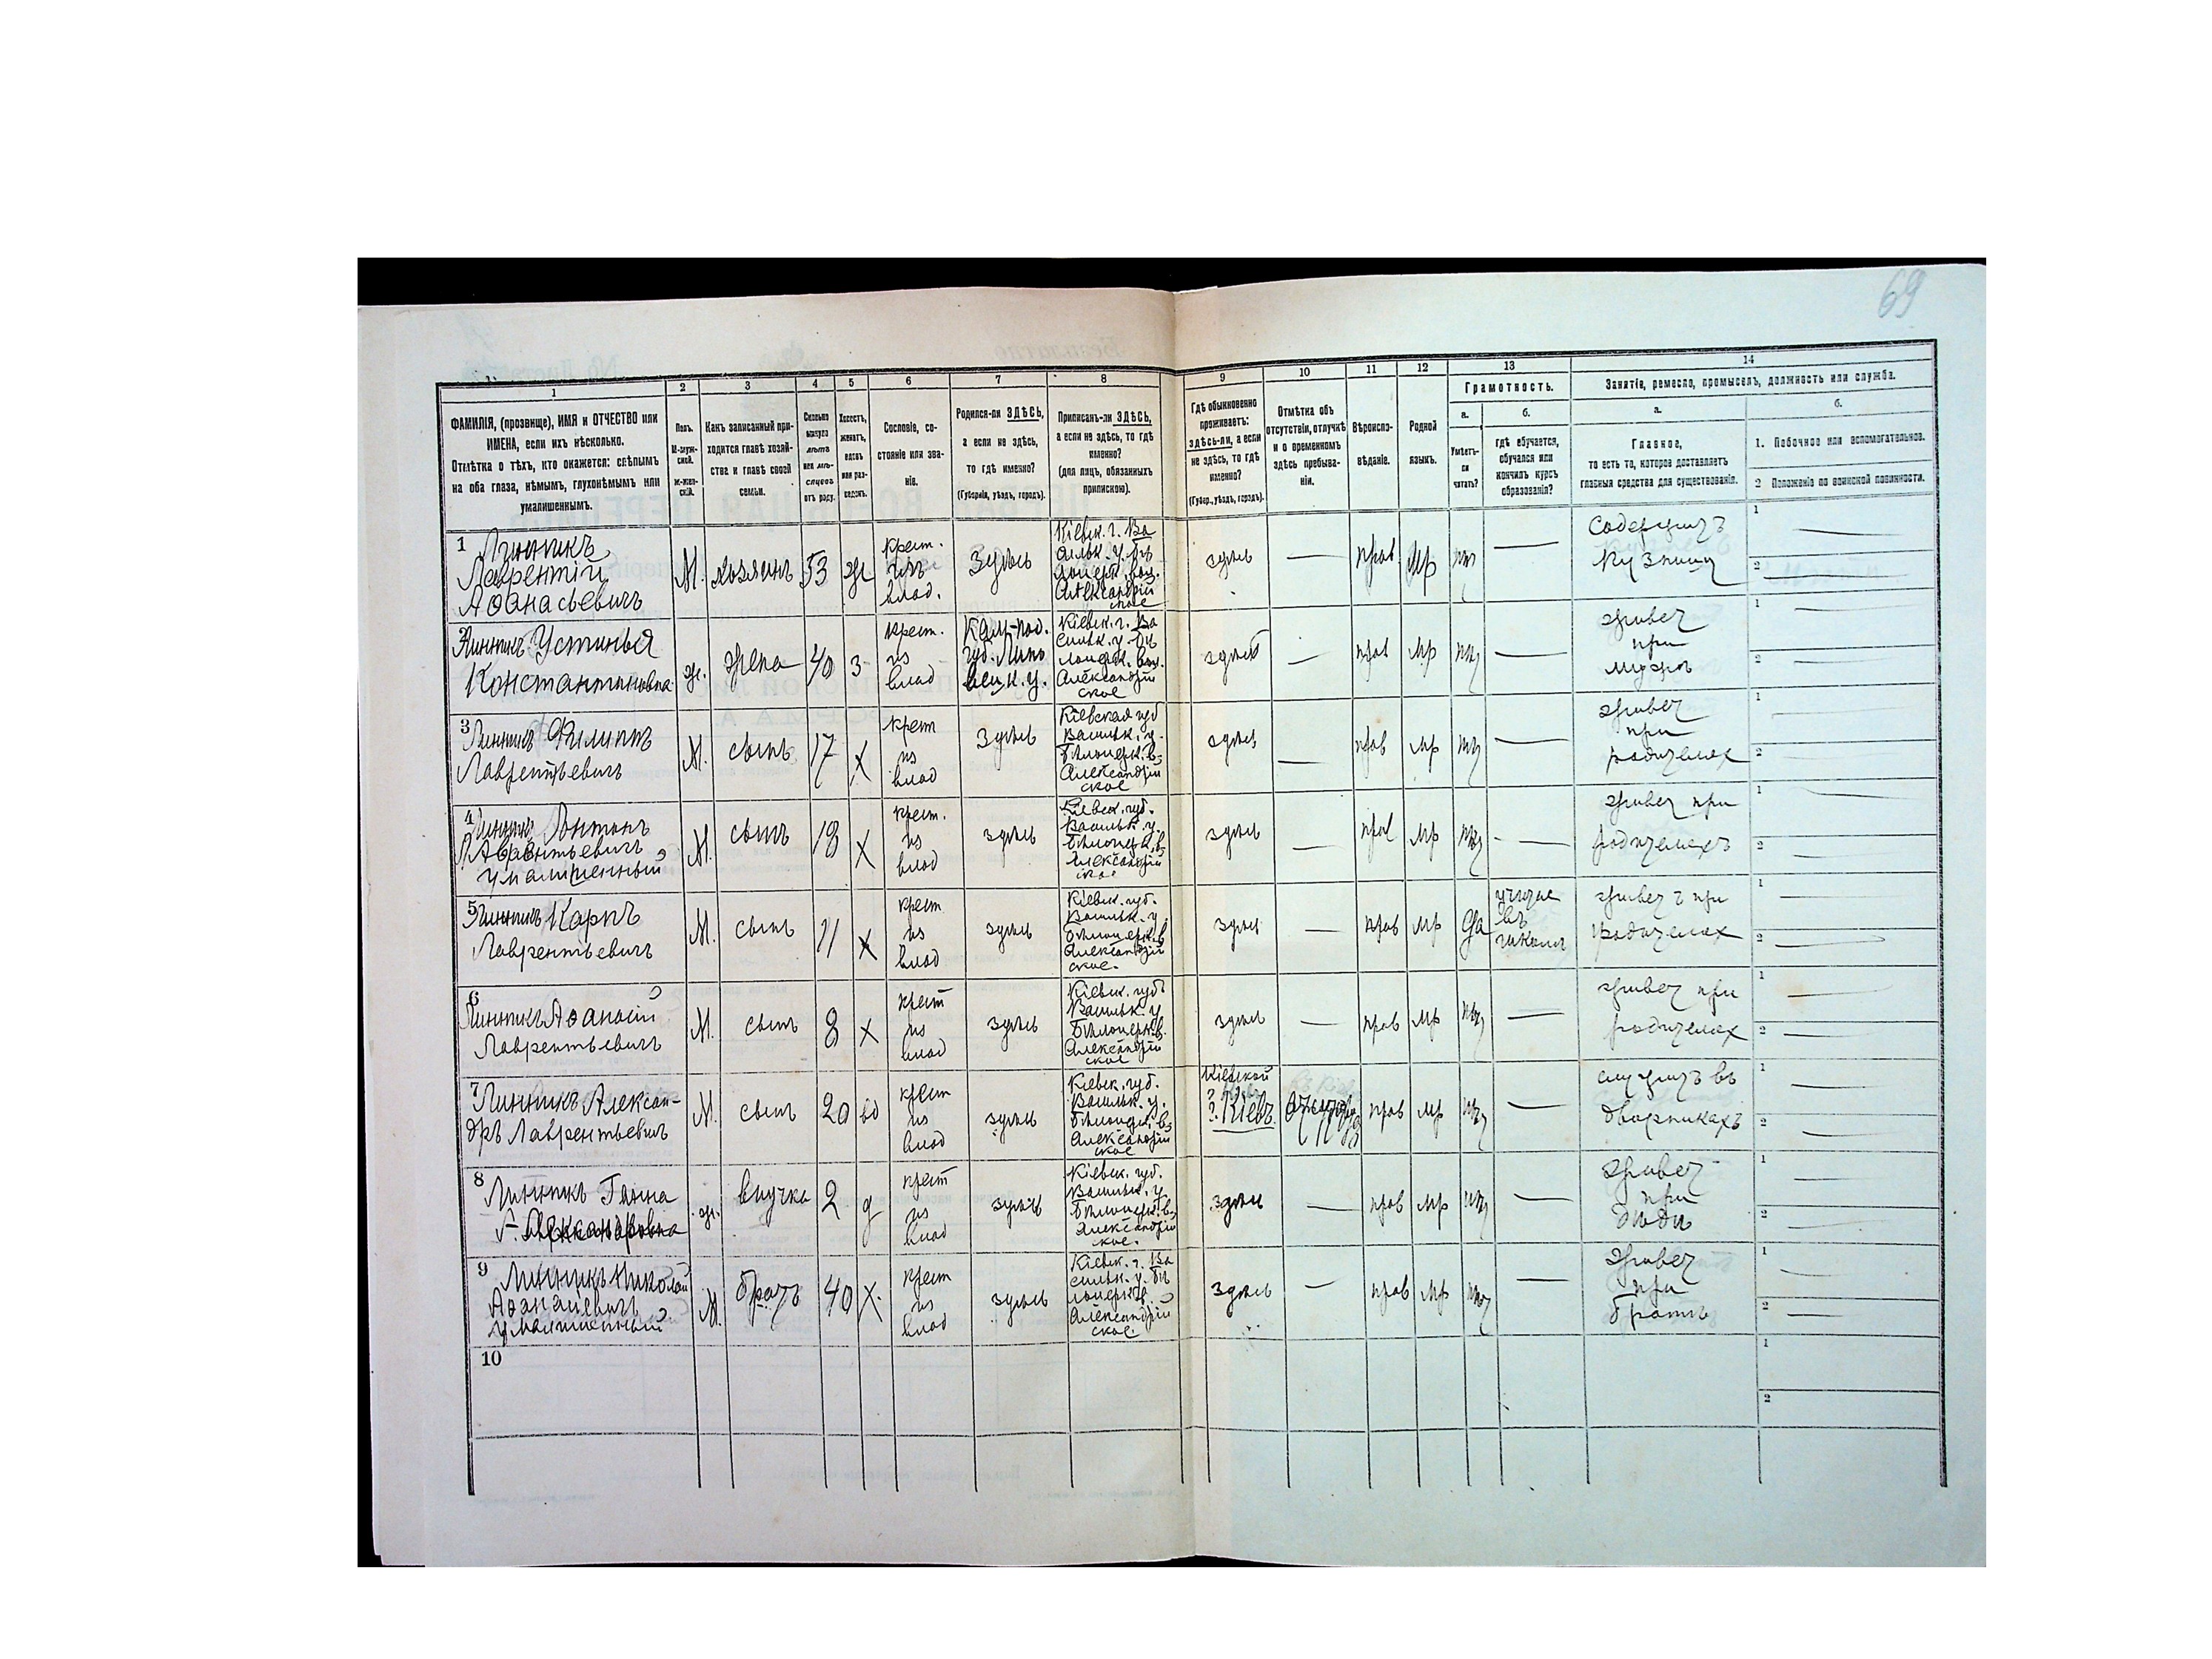 69
1 2 3 4 5 6 7 8 9 10 11 12 13 14
ФАМИЛІЯ, (прозвище), ИМЯ и ОТЧЕСТВО или
ИМЕНА, если ихъ нѣсколько.
Отмѣтка о тѣхъ, кто окажется: слѣпымъ
на оба глаза, нѣмымъ, глухонѣмымъ или
умалишеннымъ.
Полъ.
М-муж-
ской.
ж-жен-
скій.
Какъ записанный при-
ходится главѣ хозяй-
ства и главѣ своей
семьи.
Сколько
минуло
лѣтъ
или мѣ-
сяцевъ
отъ роду.
Холостъ,
женатъ,
вдовъ
или раз-
веденъ.
Сословіе, со-
стояніе или зва-
ніе.
Родился-ли ЗДѢСЬ,
а если не здѣсь,
то гдѣ именно?
(Губернія, уѣздъ, городъ).
Приписанъ-ли ЗДѢСЬ,
а если не здѣсь, то гдѣ
именно?
(для лицъ, обязанныхъ
припискою).
Гдѣ обыкновенно
проживаетъ:
здѣсь-ли, а если
не здѣсь, то гдѣ
именно?
(Губер., уѣздъ, городъ).
Отмѣтка объ
отсутствіи, отлучкѣ
и о временномъ
здѣсь пребыва-
ніи.
Вѣроиспо-
вѣданіе.
Родной
языкъ.
Грамотность.
а.
Умѣетъ-
ли
читать?
б.
гдѣ обучается,
обучался или
кончилъ курсъ
образованія?
Занятіе, ремесло, промыселъ, должность или служба.
а.
Главное,
то есть то, которое доставляетъ
главныя средства для существованія.
б.
1. Побочное или вспомогательное.
2 Положеніе по воинской повинности.
1 Линникъ
Лаврентій
Аѳанасьевичъ
М. хозяинъ 53 ж
крест.
изъ
влад.
Здѣсь
Кіевск. г. Ва
сильк. у. Бѣ
лоцерк. вол.
Александрій
ское
здѣсь — прав мр нѣт —
Содержитъ
Кузницу
1
2
2 Линникъ Устинья
Константиновна
ж. жена 40 з
крест.
из
влад
Кам-под.
губ. Липо
вец. к. у.
Кіевск. г. Ва
сильк. у. Бѣ
лоцерк. вол.
Александрій
ское
здѣсь — прав мр нѣт —
живет
при
мужѣ
1
2
3 Линникъ Филиппъ
Лаврентьевичъ
М. сынъ 17 х
крест
из
влад
Здѣсь
Кіевская губ
Васильк. у.
Бѣлоцерк. в.
Александрій
ское
здѣсь — прав мр нѣт —
живет
при
родителях
1
2
4 Линник Антонъ
Лаврентьевичъ
умалишенный
М. сынъ 18 х
крест.
из
влад
здѣсь
Кіевск. губ.
Васильк. у.
Бѣлоцерк. в
Александрій
ское
здѣсь — прав мр нѣт —
живет при
родителяхъ
1
2
5 Линникъ Карпъ
Лаврентьевичъ
М. сынъ 11 х
крест
из
влад
здѣсь
Кіевск. губ.
Васильк. у.
Бѣлоцерк. в
Александрій
ское.
здѣсь — прав мр да
въ
школѣ
живет при
родителях
1
2
6
Линникъ Аѳанасій
Лаврентьевичъ
М. сынъ 8 х
крест
из
влад
здѣсь
Кіевск. губ
Васильк. у
Бѣлоцерк. в.
Александрій
ское
здѣсь — прав мр нѣт —
живет при
родителях
1
2
7 Линникъ Алексан-
дръ Лаврентьевичъ
М. сынъ 20 вд
крест
из
влад
здѣсь
Кіевск. губ.
Васильк. у.
Бѣлоцерк. в.
Александрій
ское
Кіевской
г. Кіевъ.
прав мр нѣт —
служитъ въ
дворникахъ
1
2
8
Линникъ Ганна
Александровна
ж. внучка 2 д
крест
из
влад
здѣсь
Кіевск. губ.
Васильк. у
Бѣлоцерк. в.
Александрій
ское.
здѣсь — прав мр нѣт —
живет
при
дѣдѣ
1
2
9 Линникъ Николай
Аѳанасіевичъ
умалишенный
М. братъ 40 х.
крест
из
влад
здѣсь
Кіевск. г. Ва
сильк. у. Бѣ
лоцерк. в.
Александрій
ское.
здѣсь — прав мр нѣт —
живет
при
братѣ
1
2
10
1
2